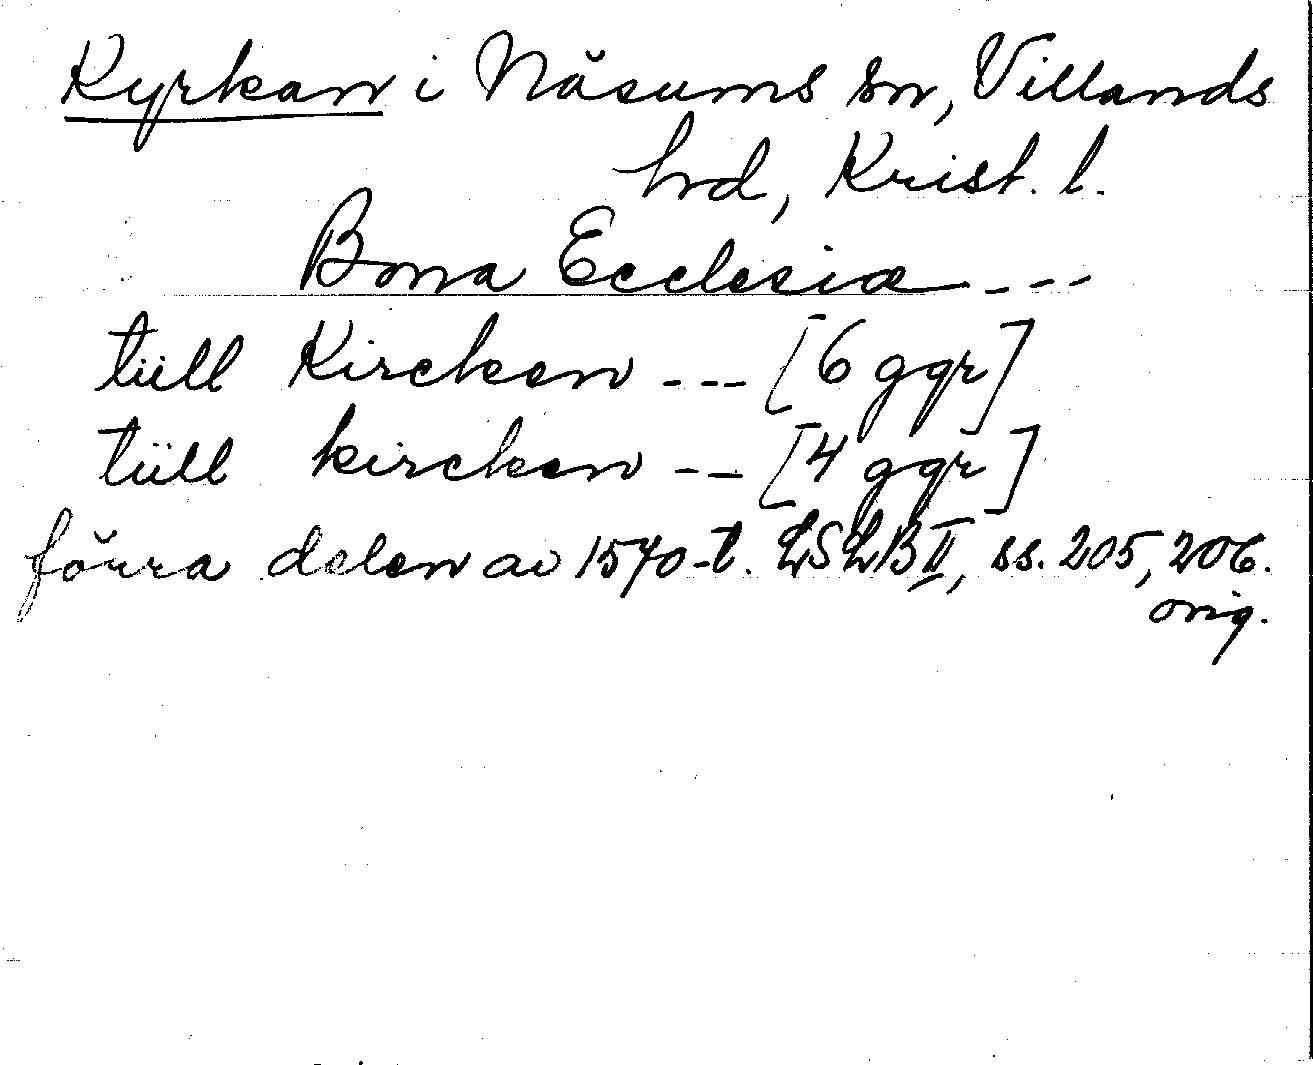 Kyrkan i Näsums sn, Villands
hrd, Krist. l.
Bona Ecclesiæ ---
tiill Kircken --- [6 ggr]
tiill kircken -- [4 ggr]
förra delen av 1570-t. LSLB II, ss. 205, 206.
orig.